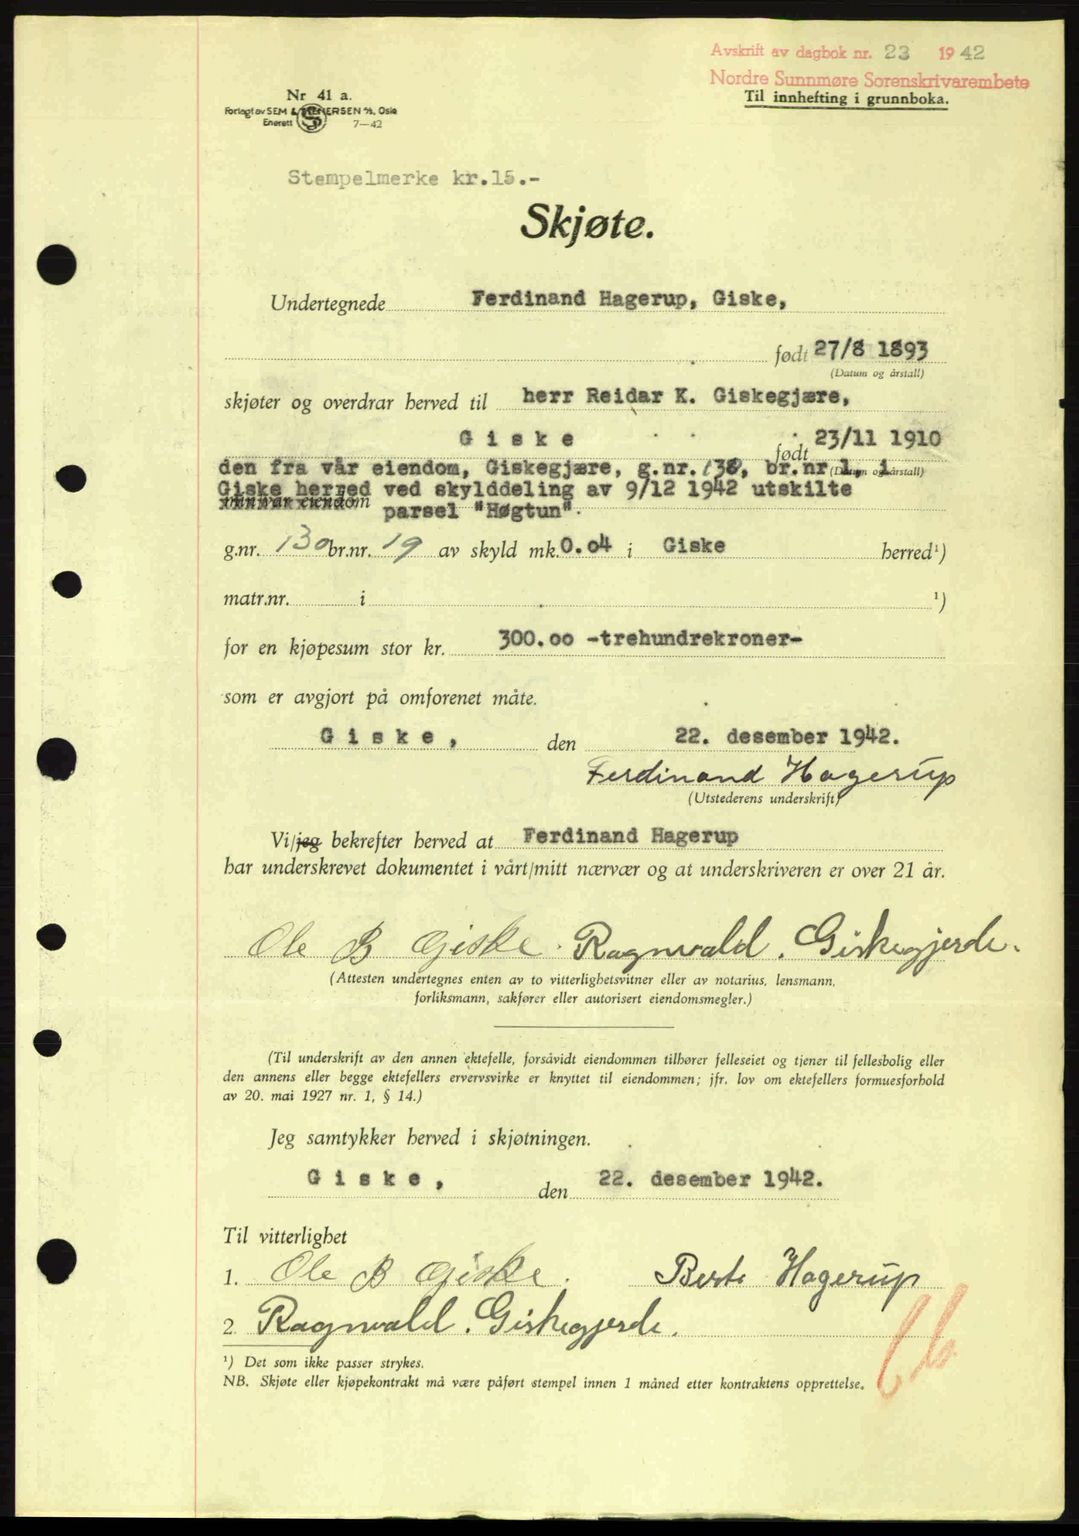 Avskrift av dagbok nr. 23 1942
Nordre Sunnmøre Sorenskrivarembete
Til innhefting i grunnboka.
Nr 41 a.
Forlagt av SEM & STENERSEN A/S, Oslo
Enerett 7-42
Stempelmerke kr.15.-
Skjøte.
Undertegnede Ferdinand Hagerup, Giske,
født 27/8 1893
(Datum og årstall)
skjøter og overdrar herved til herr Reidar K. Giskegjære,
Giske født 23/11 1910
(Datum og årstall)
den fra vår eiendom, Giskegjære, g.nr. 130, br.nr 1, i
Giske herred ved skylddeling av 9/12 1942 utskilte
parsel "Høgtun".
g.nr. 130 br.nr. 19 av skyld mk. 0.04 i Giske herred¹)
matr.nr. i ¹)
for en kjøpesum stor kr. 300.00 -trehundrekroner-
som er avgjort på omforenet måte.
Giske, den 22. desember 1942.
Ferdinand Hagerup
(Utstederens underskrift)
Vi/jeg bekrefter herved at Ferdinand Hagerup
har underskrevet dokumentet i vårt/mitt nærvær og at underskriveren er over 21 år.
Ole B Giske. Ragnvald. Giskegjerde.
(Attesten undertegnes enten av to vitterlighetsvitner eller av notarius, lensmann,
forliksmann, sakfører eller autorisert eiendomsmegler.)
(Til underskrift av den annen ektefelle, forsåvidt eiendommen tilhører felleseiet og tjener til fellesbolig eller
den annens eller begge ektefellers ervervsvirke er knyttet til eiendommen; jfr. lov om ektefellers formuesforhold
av 20. mai 1927 nr. 1, § 14.)
Jeg samtykker herved i skjøtningen.
Giske, den 22. desember 1942.
Til vitterlighet
1. Ole B Giske. Berte Hagerup
2 Ragnvald. Giskegjerde.
¹) Det som ikke passer strykes.
NB. Skjøte eller kjøpekontrakt må være påført stempel innen 1 måned etter kontraktens opprettelse.